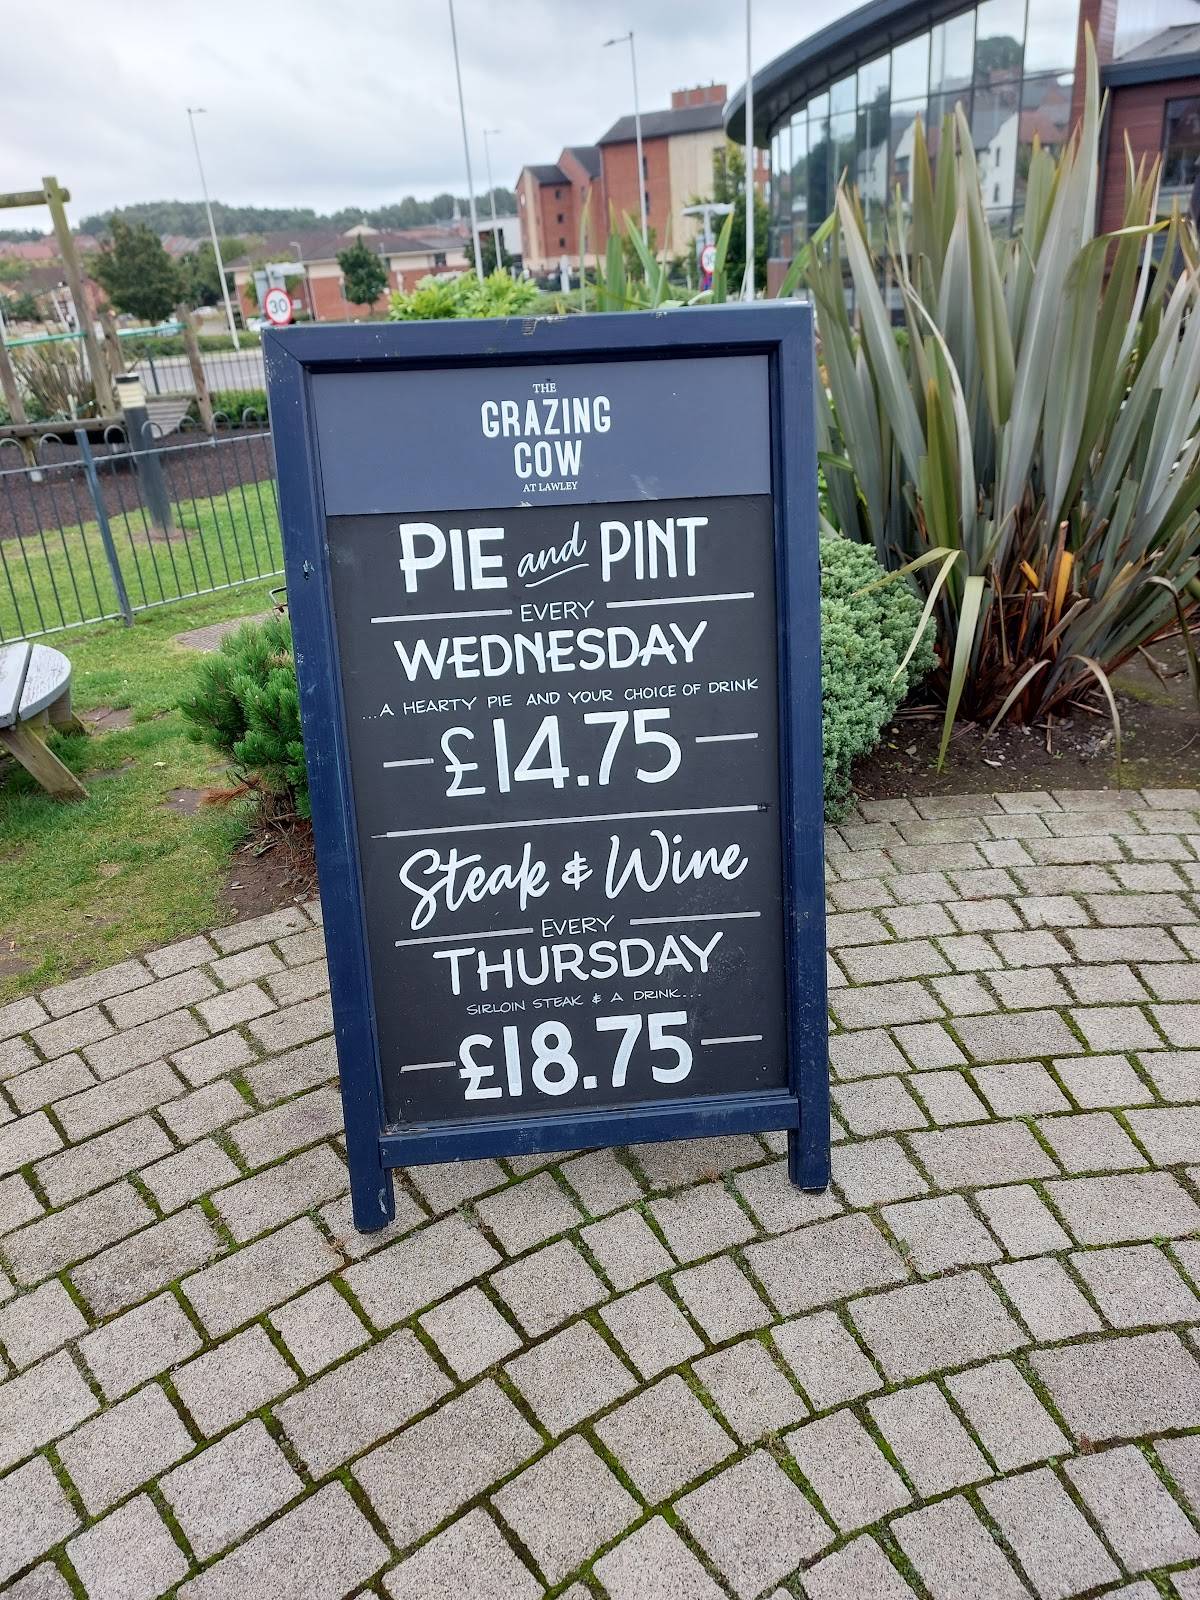 30
THE
GRAZING
COW
AT LAWLEY
PIE and PINT
EVERY
WEDNESDAY
...A HEARTY PIE AND YOUR CHOICE OF DRINK
£14.75
Steak & Wine
EVERY
THURSDAY
SIRLOIN STEAK & A DRINK...
£18.75